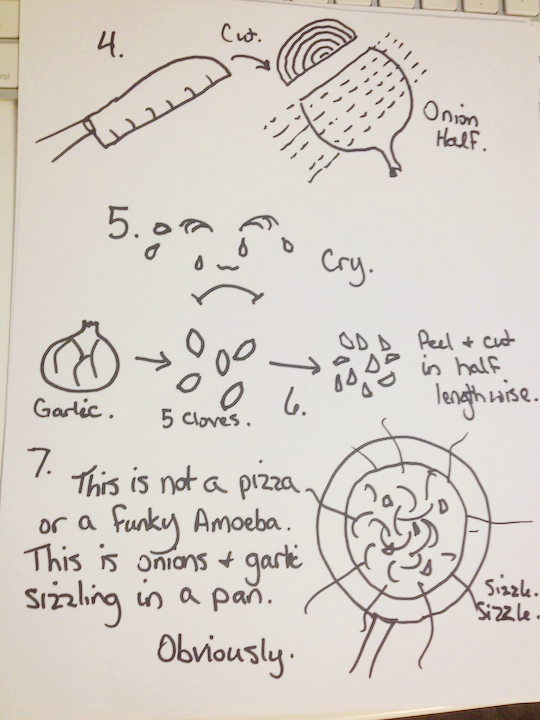 4.
Cut.
Onion
Half.
5.
Cry.
Garlic.
5 cloves.
6.
Peel + cut
in half
lengthwise.
7.
This is not a pizza
or a funky Amoeba.
This is onions + garlic
sizzling in a pan.
Obviously.
Sizzle.
Sizzle.